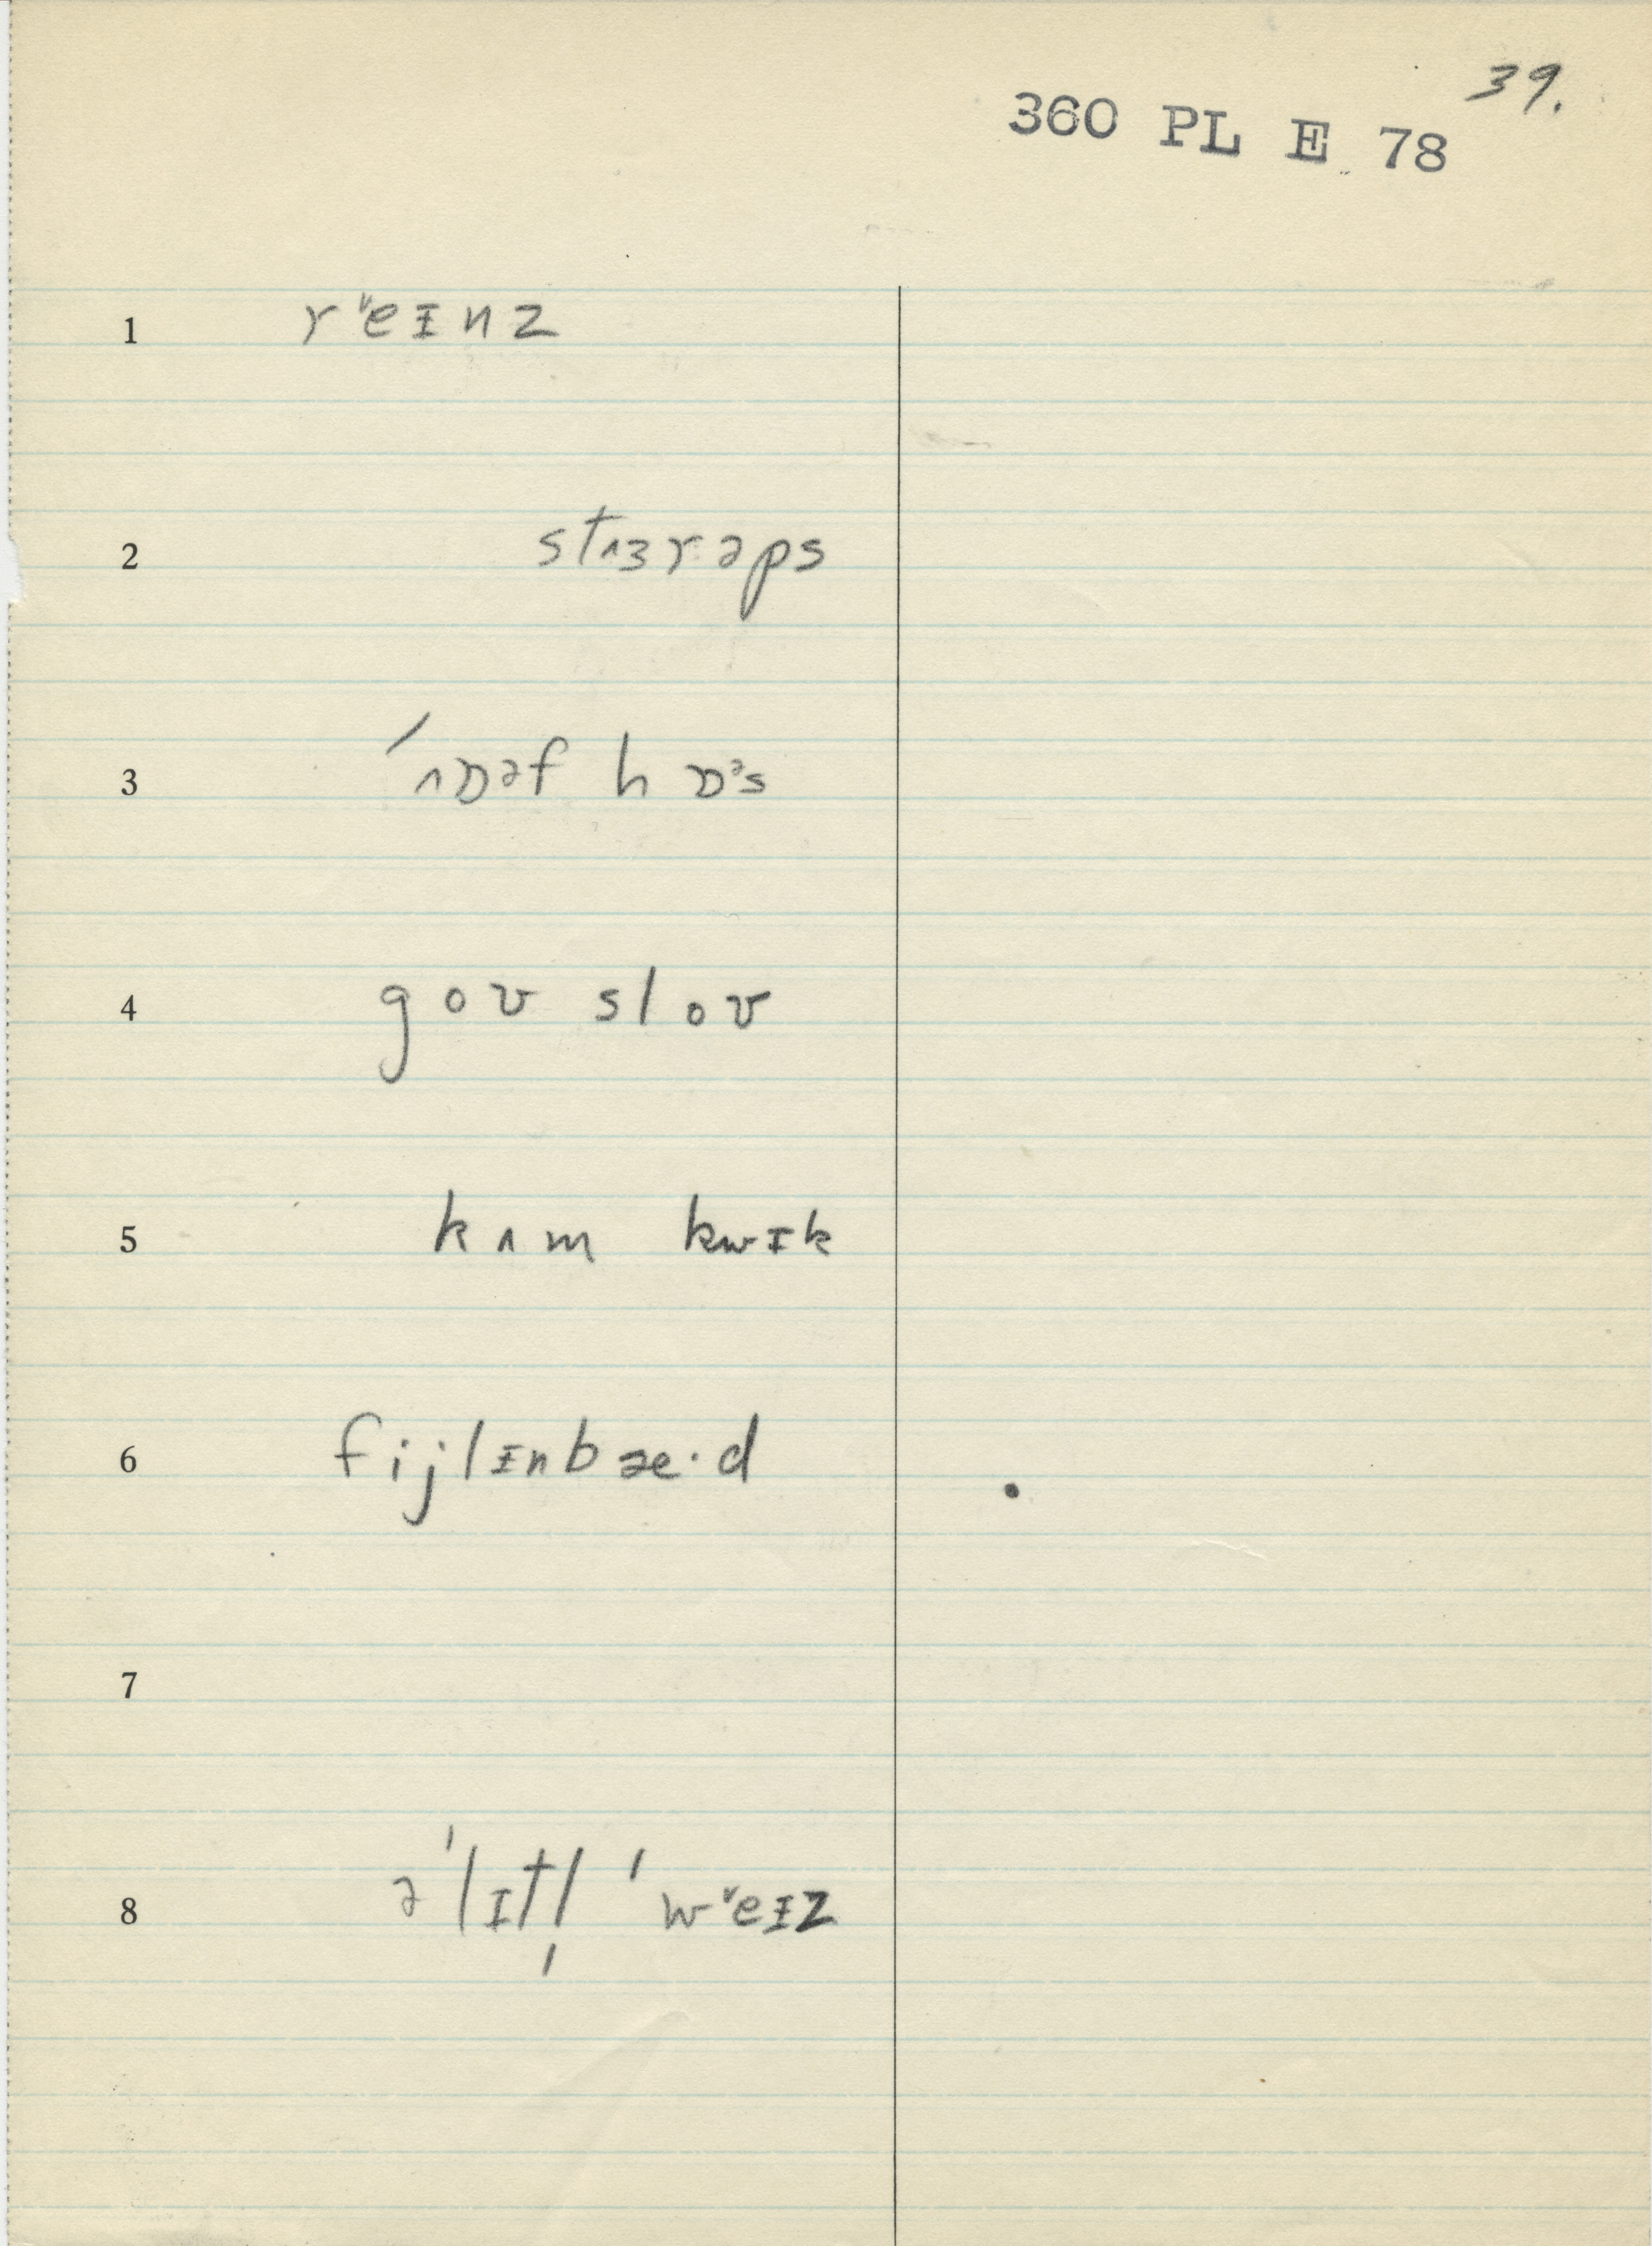 39.
360 PL E 78
1 rᵛeɪnz
2 stʌɜrəps
3 ˊʌɒəf hɒᵊs
4 goʊ sloʊ
5 kʌm kwɪk
6 fijlɪnbæ·d
7
8 əˈlɪtl̩ ˈwᵛeɪz